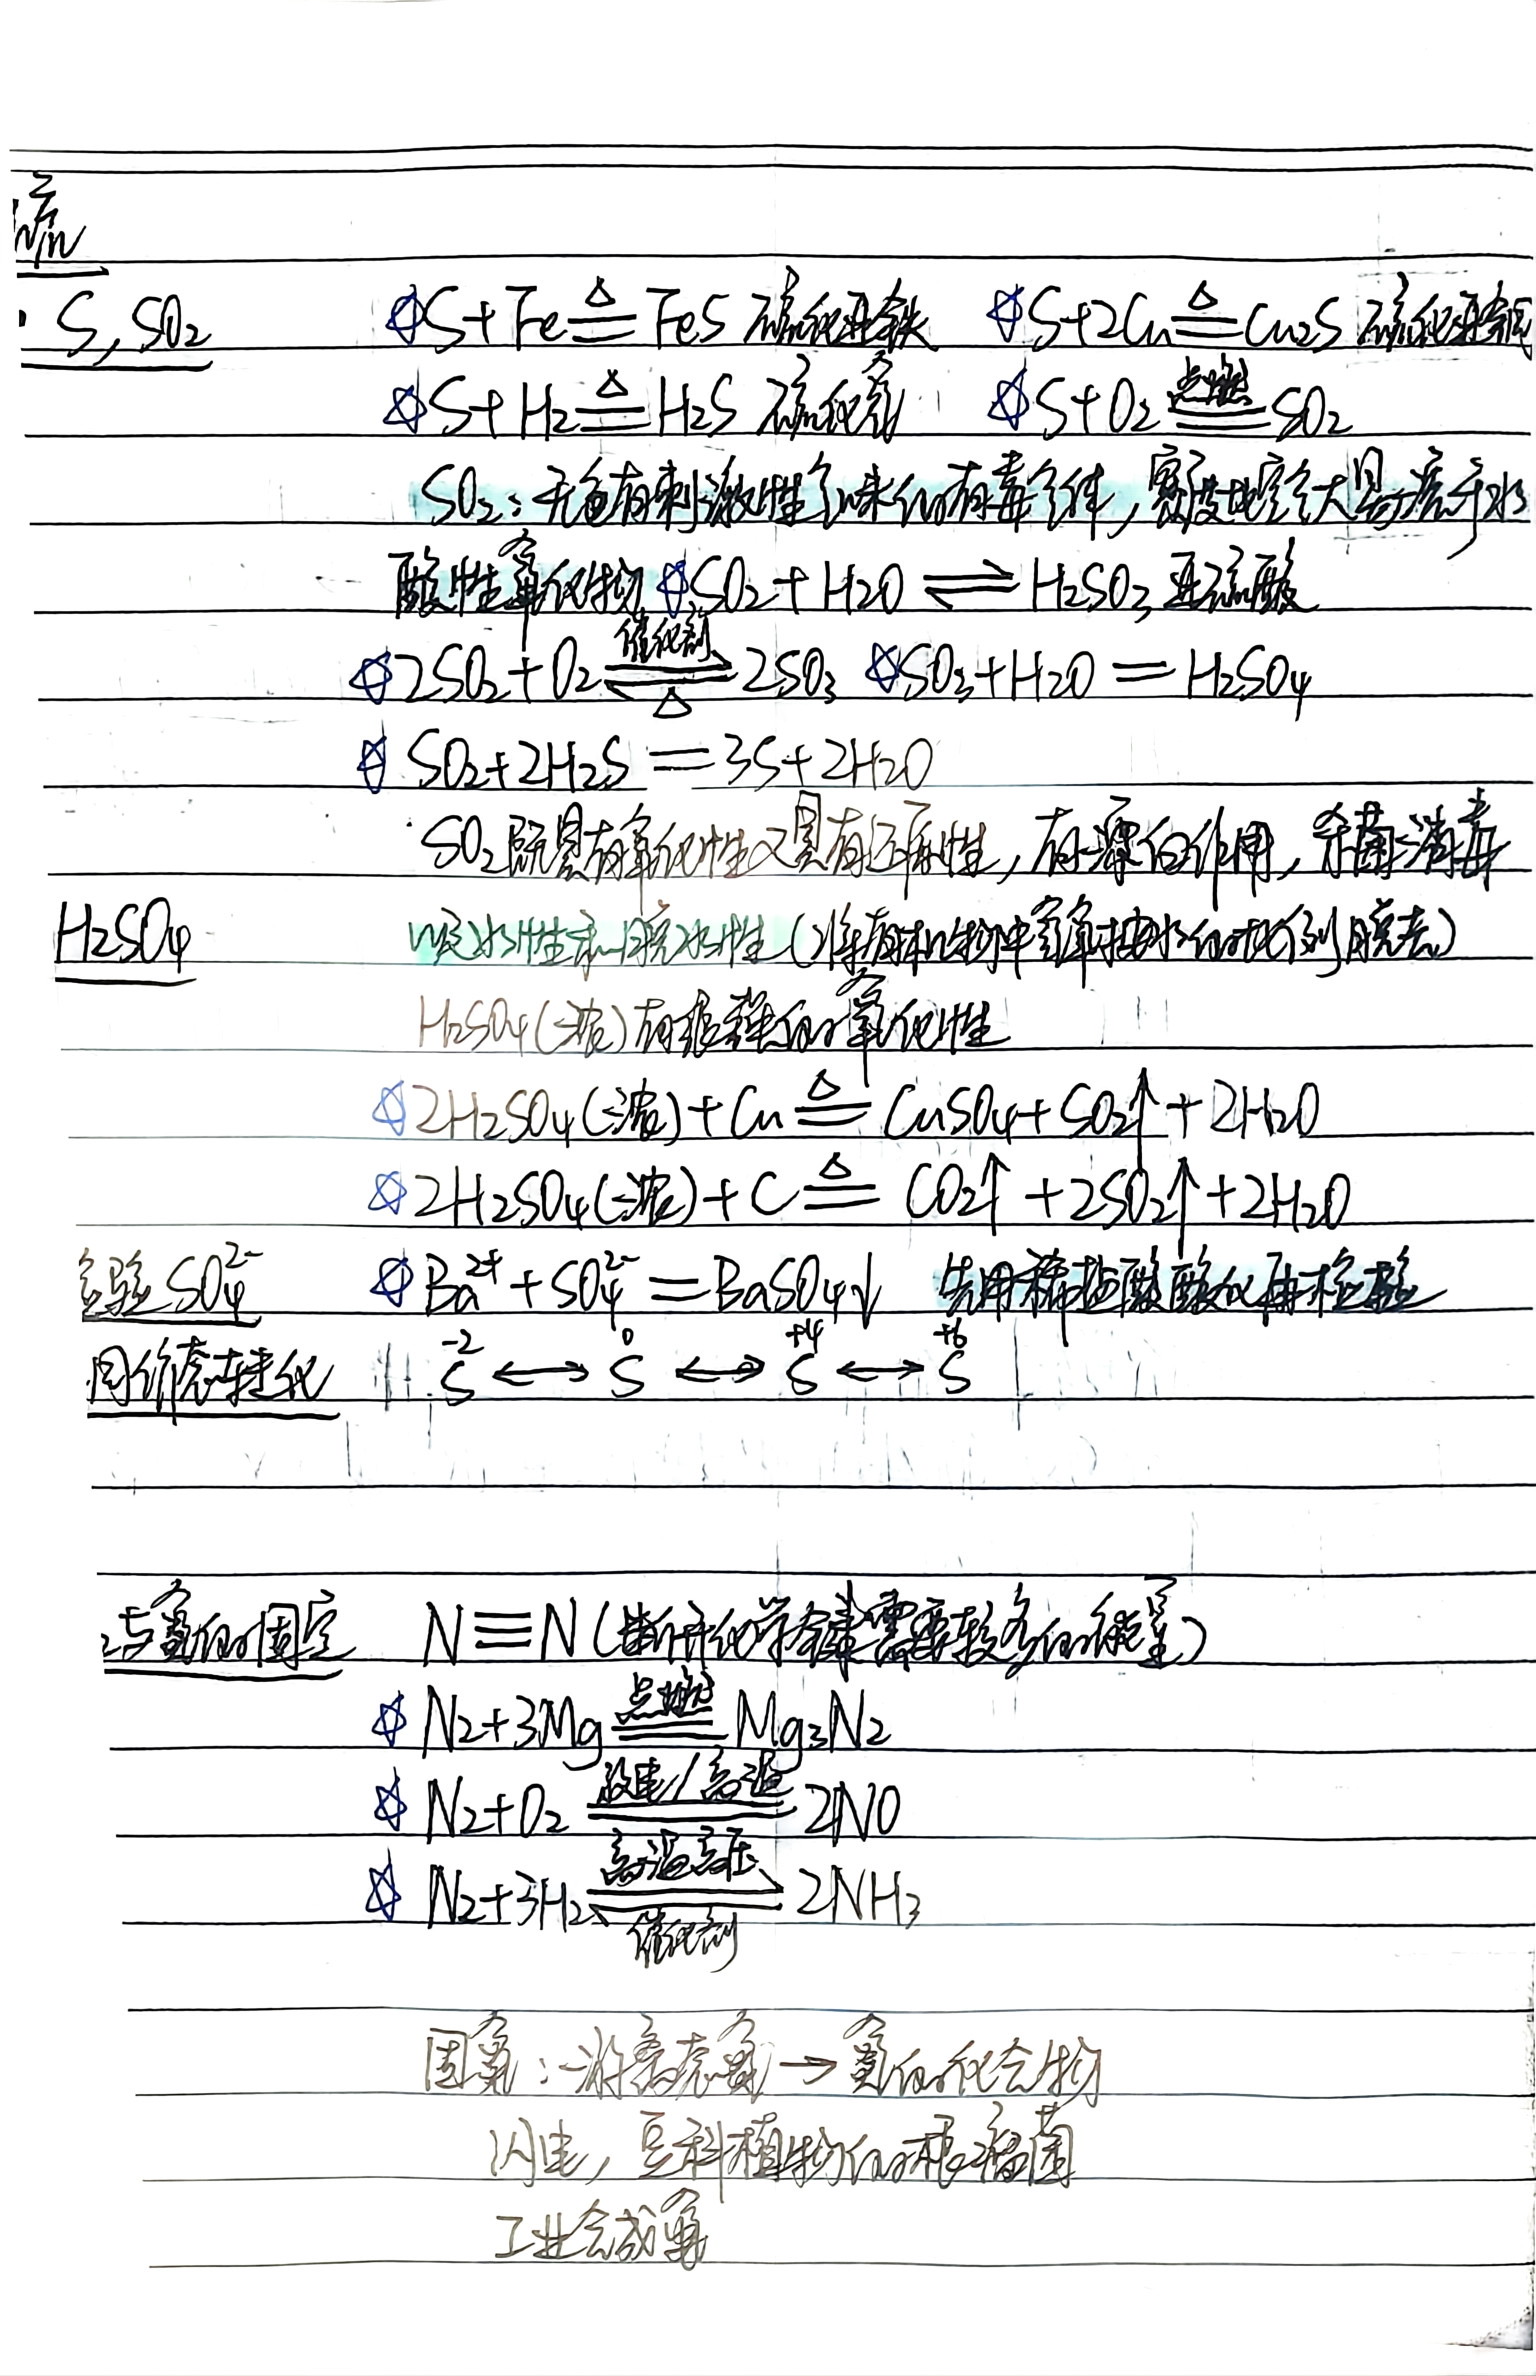 硫
S, SO₂ ☆S+Fe≜FeS 硫化亚铁 ☆S+2Cu≜Cu₂S 硫化亚铜
☆S+H₂≜H₂S 硫化氢 ☆S+O₂ 点燃═ SO₂
SO₂:无色有刺激性气味的有毒气体,密度比空气大易溶于水
酸性氧化物 ☆SO₂+H₂O⇌H₂SO₃ 亚硫酸
☆2SO₂+O₂ 催化剂⇌△ 2SO₃ ☆SO₃+H₂O=H₂SO₄
☆SO₂+2H₂S=3S+2H₂O
SO₂既具有氧化性又具有还原性,有漂白作用,杀菌消毒
H₂SO₄ 吸水性和脱水性(将有机物中氢氧按水的比例脱去)
H₂SO₄(浓)有很强的氧化性
☆2H₂SO₄(浓)+Cu≜CuSO₄+SO₂↑+2H₂O
☆2H₂SO₄(浓)+C≜CO₂↑+2SO₂↑+2H₂O
验SO₄²⁻ ☆Ba²⁺+SO₄²⁻=BaSO₄↓ 先用稀盐酸酸化再检验
同价态转化 -2 S ↔ 0 S ↔ +4 S ↔ +6 S
与氮的固定 N≡N(断开化学键需要较多的能量)
☆N₂+3Mg 点燃═ Mg₃N₂
☆N₂+O₂ 放电/高温═ 2NO
☆N₂+3H₂ 高温高压⇌催化剂 2NH₃
固氮:游离态氮→氮的化合物
闪电,豆科植物的根瘤菌
工业合成氨